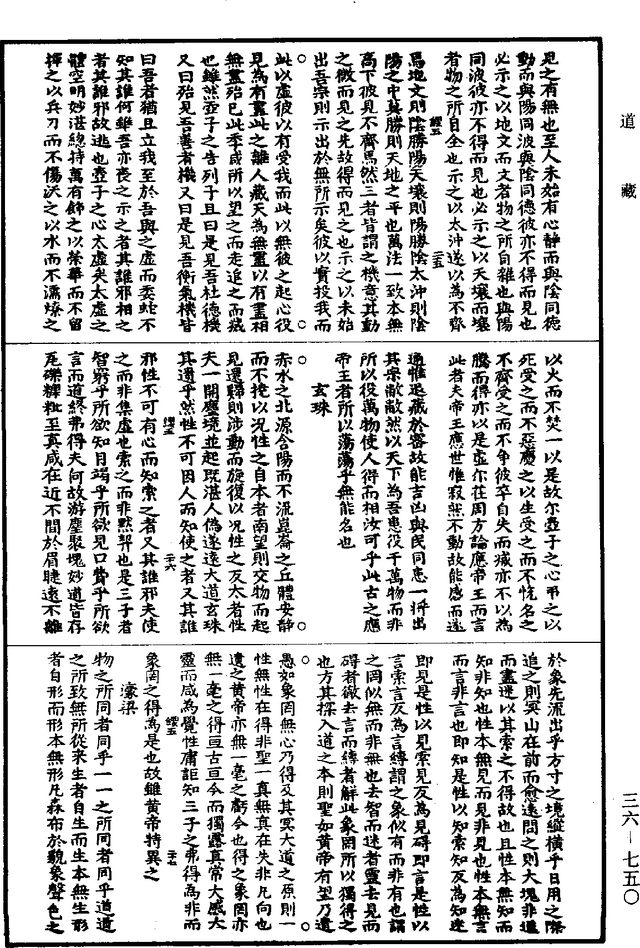 道藏
見之有無也至人未始有心靜而與陰同德
動而與陽同波與陰同德彼亦不得而見也
必示之以地文而文者物之所自雜也與陽
同波彼亦不得而見也必示之以天壤而壤
者物之所自全也示之以太沖遂以為不齊
焉地文則陰勝陽天壤則陽勝陰太沖則陰
陽之中莫勝則天地之平也萬法一致本無
高下彼見不齊焉然三者皆謂之機意其動
之微而見之先故得而見之也示之以未始
出吾宗則示出於無所示矣彼以實投我而
此以虛彼以有受我而此以無彼之起心役
見為有盡此之離人藏天為無盡以有盡相
無盡殆已此季咸所以望之而走追之而滅
也雖然壺子之告列子且曰是見吾杜德機
又曰殆見吾善者機又曰是見吾衡氣機皆
曰吾者猶且立我至於吾與之虛而委蛇不
知其誰何雖吾亦喪之示之者其誰邪相之
者其誰邪故逃也壺子之心太虛矣太虛之
體空明妙湛總持萬有飾之以榮華而不留
揮之以兵刃而不傷沃之以水而不濡燎之
以火而不焚一以是故尔壺子之心弔之以
死受之而不惡慶之以生受之而不悅名之
不齊受之而不爭彼卒自失而滅亦不以為
騰而得亦以是虛尔莊周方論應帝王而言
此者夫帝王應世惟寂然不動故能感而遂
通惟退藏於密故能吉凶與民同患一將出
其宗敵敵然以天下為吾患役千萬物而非
所以役萬物使人得而相汝可乎此古之應
帝王者所以蕩蕩乎無能名也
玄珠
赤水之北源含陽而不流崑崙之丘體安靜
而不撓以況性之自本者南望則交物而起
見還歸則涉動而旋復以況性之反太者性
天一開塵境並起既湛人偽遂遠大道玄珠
其遺乎然性不可因人而知使之者又其誰
邪性不可有心而知索之者又其誰邪夫使
之而非集虛也索之而非默契也是三子者
智窮乎所欲知目竭乎所欲見口費乎所欲
言而道終弗得夫何故游塵聚塊妙道皆存
瓦礫糠粃至真咸在近不間於眉睫遠不離
於象先流出乎方寸之境縱橫乎日用之際
追之則冥山在前而愈遠問之則大塊非遺
而盡迷以其索之不得故也且性本無知而
知非知也性本無見而見非見也性本無言
而言非言也即知是性以知索知反為知迷
即見是性以見索見反為見碍即言是性以
言索言反為言縛謂之象似有而非有也謂
之罔似無而非無也去智而迷者靈去見而
碍者徹去言而縛者解此象罔所以獨得之
也方其探入道之本則聖如黃帝有望乃遺
愚如象罔無心乃得及其冥大道之原則一
性無性在得非聖一真無真在失非凡向也
遺之黃帝亦無一毫之虧今也得之象罔亦
無一毫之得亘古亘今而獨露真常大感大
靈而咸為覺性庸詎知三子之弗得為非而
象罔之得為是也故雖黃帝特異之
濠梁
物之所同者同乎一一之所同者同乎道道
之所致無所從來生者自生而生本無生形
者自形而形本無形凡森布於貌象聲色之
三六－七五〇